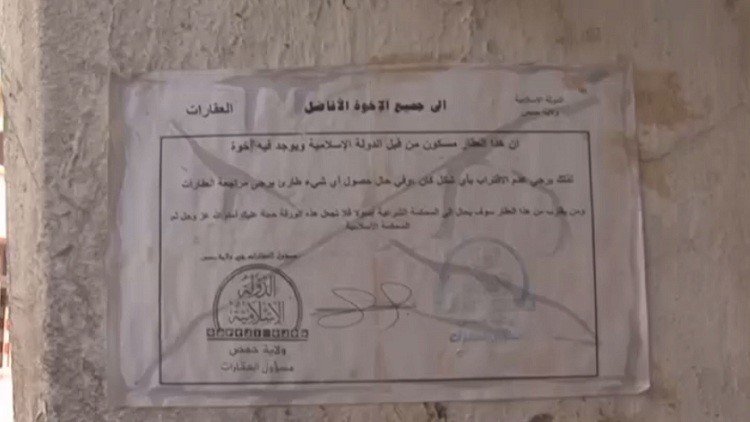 الدولة الإسلامية
ولاية حمص
الى جميع الإخوة الأفاضل
العقارات
ان هذا العقار مسكون من قبل الدولة الإسلامية ويوجد فيه أخوة
لذلك يرجى عدم الاقتراب بأي شكل كان ،وفي حال حصول أي شيء طارئ يرجى مراجعة العقارات
ومن يقترب من هذا العقار سوف يحال الى المحكمة الشرعية أصولا فلا تجعل هذه الورقة حجة عليك أمام الله عز وجل ثم
المحكمة الإسلامية.
مسؤول العقارات في ولاية حمص
الدولة
الإسلامية
ولاية حمص
مسؤول العقارات